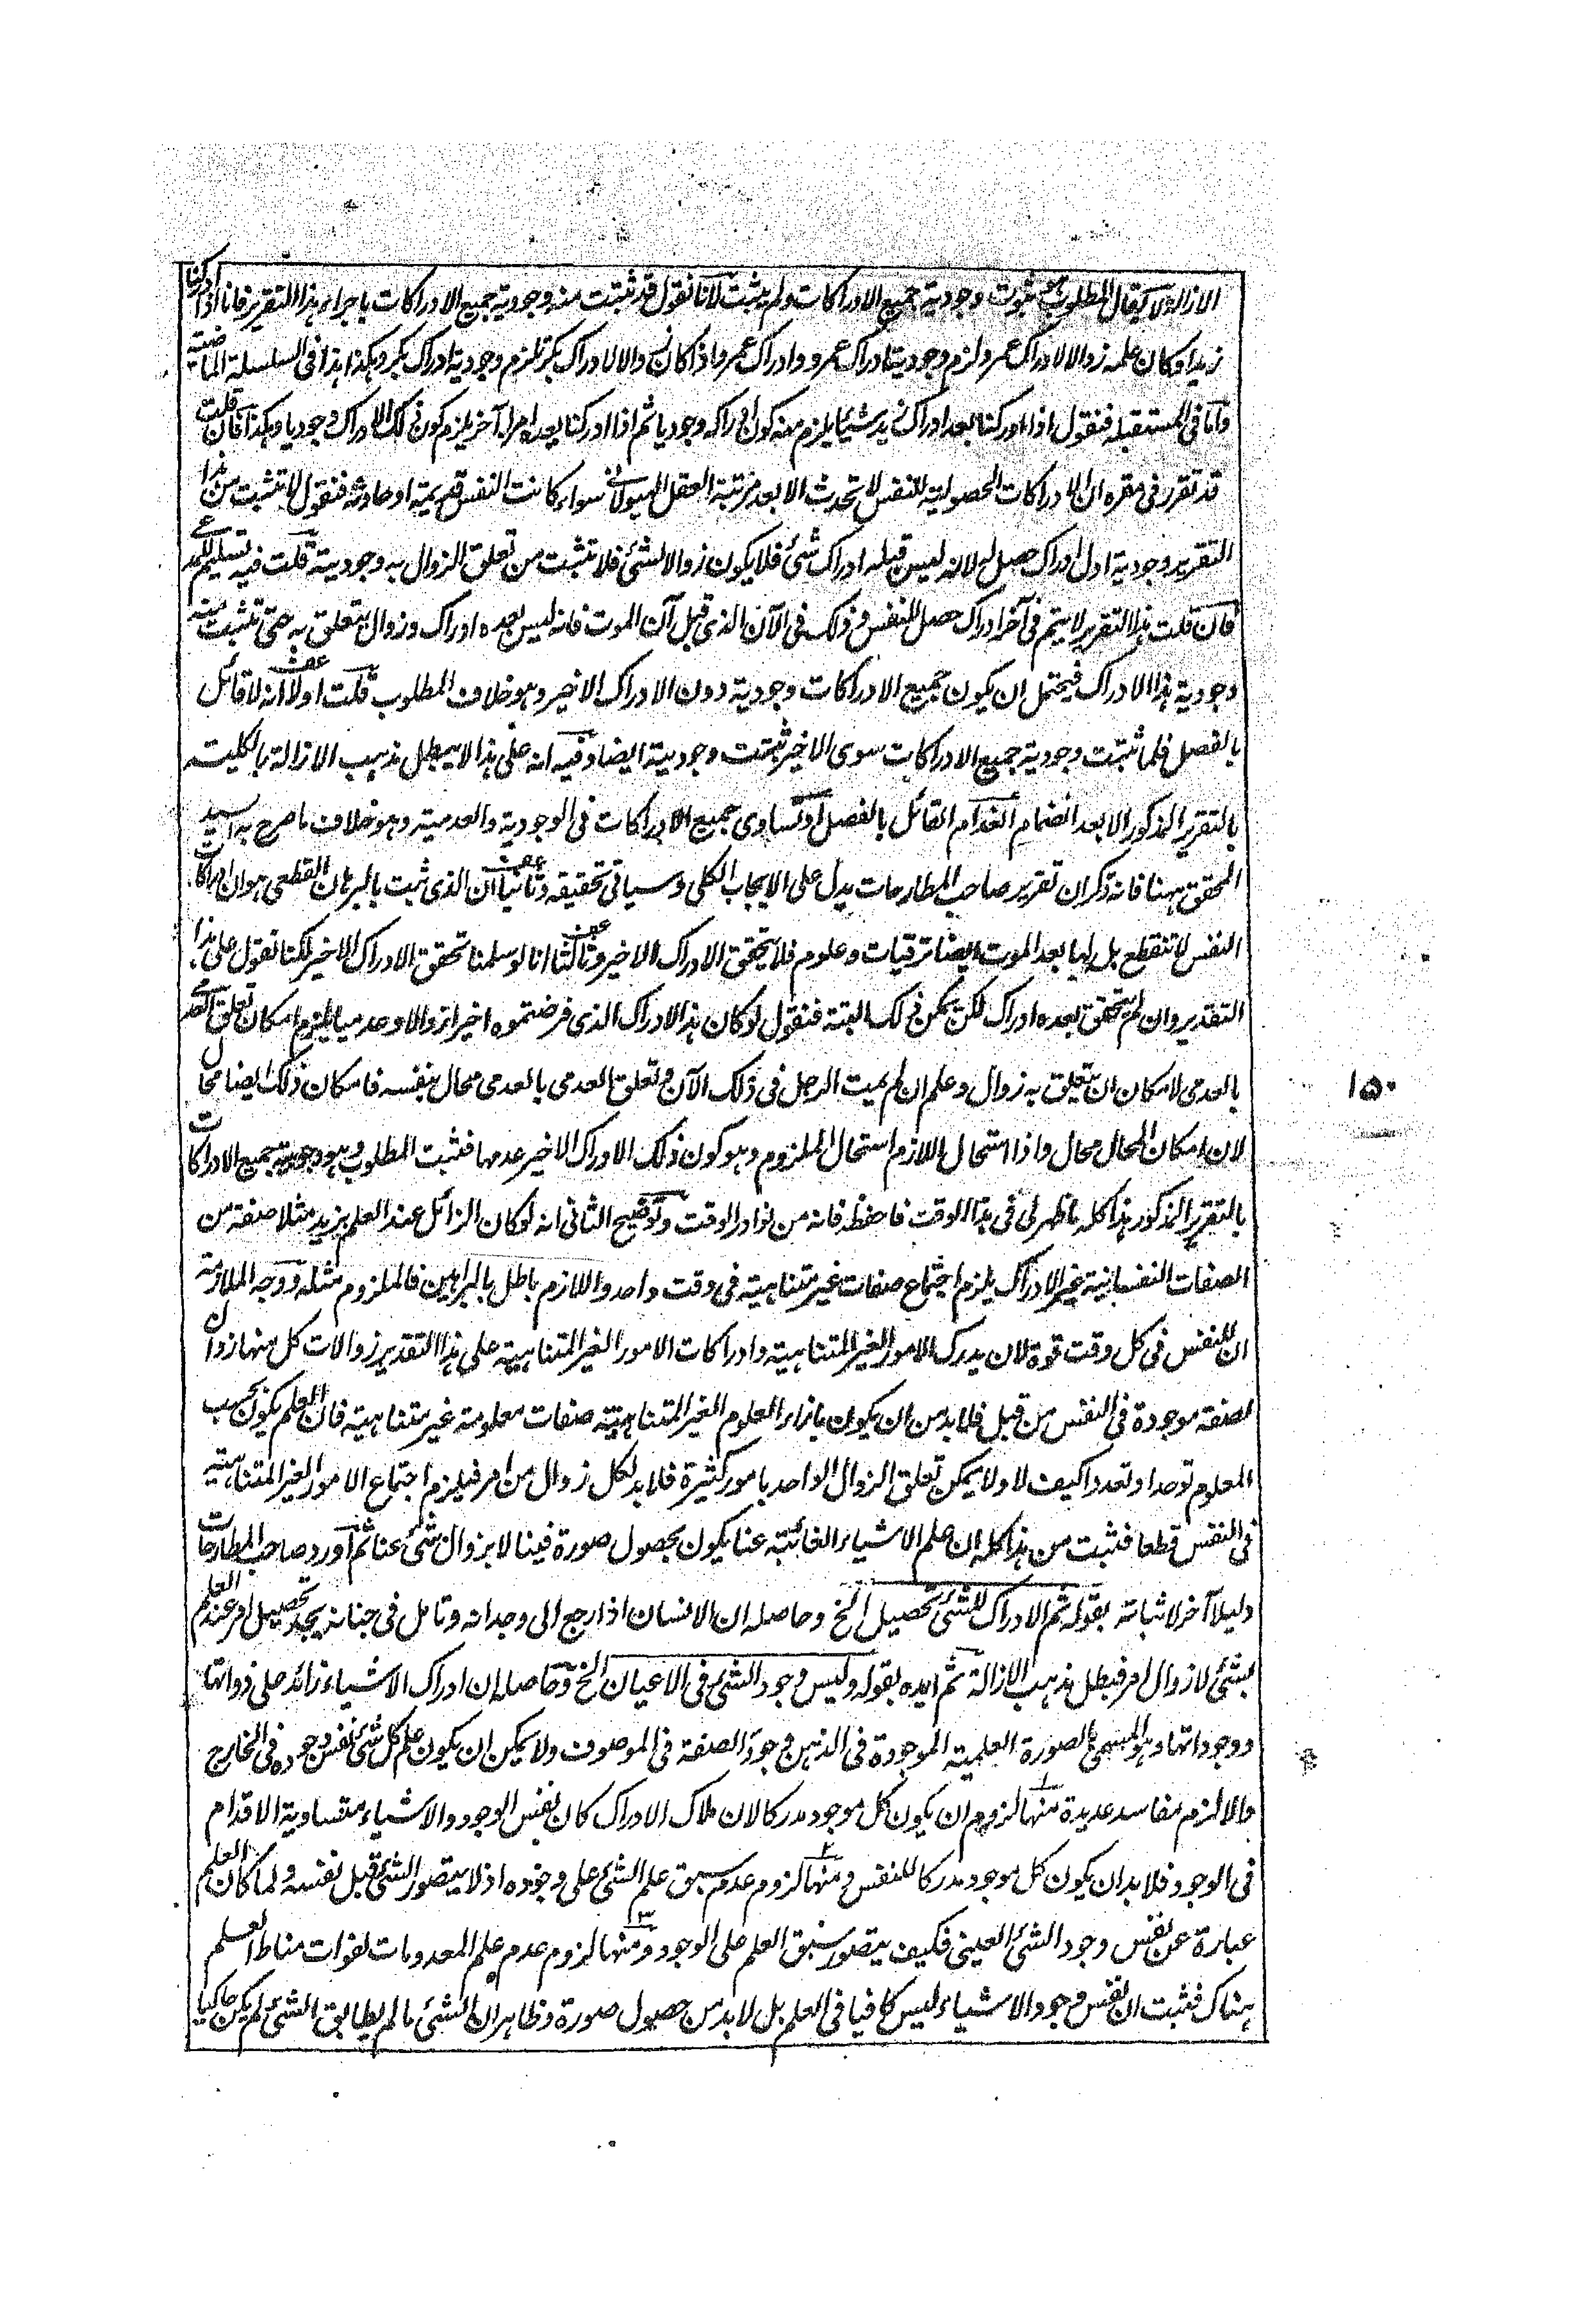 الازالة ولا يقال المطلوب هو ثبوت وجودية جميع الادراكات ولم يثبت لانا نقول قد ثبتت منه وجودية جميع الادراكات باجراء هذا التقرير فانا اذا ادركنا
زيدا وكان علمه زوالا لادراك عمرو لزم وجودية ادراك عمرو وادراك عمرو اذا كان زوالا لادراك بكر تلزم وجودية ادراك بكر وهكذا هذا فى السلسلة الماضية
واما فى المستقبلة فنقول اذا ادركنا بعد ادراك زيد شيئا يلزم منه كون ادراكه وجوديا ثم اذا ادركنا بعده امرا آخر يلزم كون ذلك الادراك وجوديا وهكذا فان قلت
قد تقرر فى مقره ان الادراكات الحصولية للنفس لا تحدث الا بعد مرتبة العقل الهيولانى سواء كانت النفس قديمة او حادثة فنقول لا تثبت من هذا
التقرير وجودية اول ادراك حصل له لانه ليس قبله ادراك شئ فلا يكون زوالا لشئ فلا تثبت من تعلق الزوال به وجوديته قلت فيه تسليم المدعى
فان قلت هذا التقرير لا يتم فى آخر ادراك حصل للنفس وذلك فى الآن الذى قبل آن الموت فانه ليس بعده ادراك وزوال يتعلق به حتى تثبت منه
وجودية هذا الادراك فيحتمل ان يكون جميع الادراكات وجودية دون الادراك الاخير وهو خلاف المطلوب قلت اولا انه لا قائل
بالفصل فلما ثبتت وجودية جميع الادراكات سوى الاخير ثبتت وجوديته ايضا وفيه انه على هذا لا يبطل مذهب الازالة بالكلية
بالتقرير المذكور الا بعد انضمام انعدام القائل بالفصل او تساوى جميع الادراكات فى الوجودية والعدمية وهو خلاف ما صرح به السيد
المحقق ههنا فانه ذكر ان تقرير صاحب المطارحات يدل على الايجاب الكلى وسياتى تحقيقه وثانيا ان الذى ثبت بالبرهان القطعى هو ان ادراكات
النفس لا تنقطع بل لها بعد الموت ايضا ترقيات وعلوم فلا يتحقق الادراك الاخير وثالثا انا لو سلمنا تحقق الادراك الاخير لكنا نقول على هذا
التقدير وان لم يتحقق بعده ادراك لكن يمكن ذلك البتة فنقول لو كان هذا الادراك الذى فرضتموه اخيرا زوالا وعدميا يلزم امكان تعلق العدمى
بالعدمى لامكان ان يتعلق به زوال وعلم ان لم يمت الرجل فى ذلك الآن وتعلق العدمى بالعدمى محال بنفسه فامكان ذلك ايضا محال
لان امكان المحال محال واذا استحال اللازم استحال الملزوم وهو كون ذلك الادراك الاخير عدمها فثبت المطلوب وهو وجودية جميع الادراكات
بالتقرير المذكور هذا كله ما ظهر لى فى هذا الوقت فاحفظه فانه من نوادر الوقت وتوضيح الثانى انه لو كان الزائل عند العلم بزيد مثلا صفة من
الصفات النفسانية غير الادراك يلزم اجتماع صفات غير متناهية فى وقت واحد واللازم باطل بالبراهين فالملزوم مثله ووجه الملازمة
ان للنفس فى كل وقت قوة لان يدرك الامور الغير المتناهية وادراكات الامور الغير المتناهية على هذا التقدير زوالات كل منها زوال
لصفة موجودة فى النفس من قبل فلا بد من ان يكون بازاء العلوم الغير المتناهية صفات معلومة غير متناهية فان العلم يكون بحسب
المعلوم توحدا وتعددا كيف لا ولا يمكن تعلق الزوال الواحد بامور كثيرة فلا بد لكل زوال من امر فيلزم اجتماع الامور الغير المتناهية
فى النفس قطعا فثبت من هذا كله ان علم الاشياء الغائبة عنا يكون بحصول صورة فينا لا بزوال شئ عنا ثم اورد صاحب المطارحات
دليلا آخر لاثباته بقوله ثم الادراك للشئ تحصيل الخ وحاصله ان الانسان اذا رجع الى وجدانه وتامل فى جنانه يجد تحصيل امر عند العلم
بشئ لا زوال امر فبطل مذهب الازالة ثم ايده بقوله وليس وجود الشئ فى الاعيان الخ وحاصله ان ادراك الاشياء زائد على ذواتها
ووجوداتها وهو المسمى بالصورة العلمية الموجودة فى الذهن وجود الصفة فى الموصوف ولا يمكن ان يكون علم كل شئ نفس وجوده فى الخارج
والا لزم مفاسد عديدة منها لزوم ان يكون كل موجود مدركا لان ملاك الادراك كان نفس الوجود والاشياء متساوية الاقدام
فى الوجود فلا بد ان يكون كل موجود مدركا للنفس ومنها لزوم عدم سبق علم الشئ على وجوده اذ لا يتصور الشئ قبل نفسه ولما كان العلم
عبارة عن نفس وجود الشئ العينى فكيف يتصور سبق العلم على الوجود ومنها لزوم عدم علم المعدومات لفوات مناط العلم
هناك فثبت ان نفس وجود الاشياء ليس كافيا فى العلم بل لا بد من حصول صورة وظاهر ان الشئ ما لم يطابق الشئ لم يكن حاكيا
١٥٠